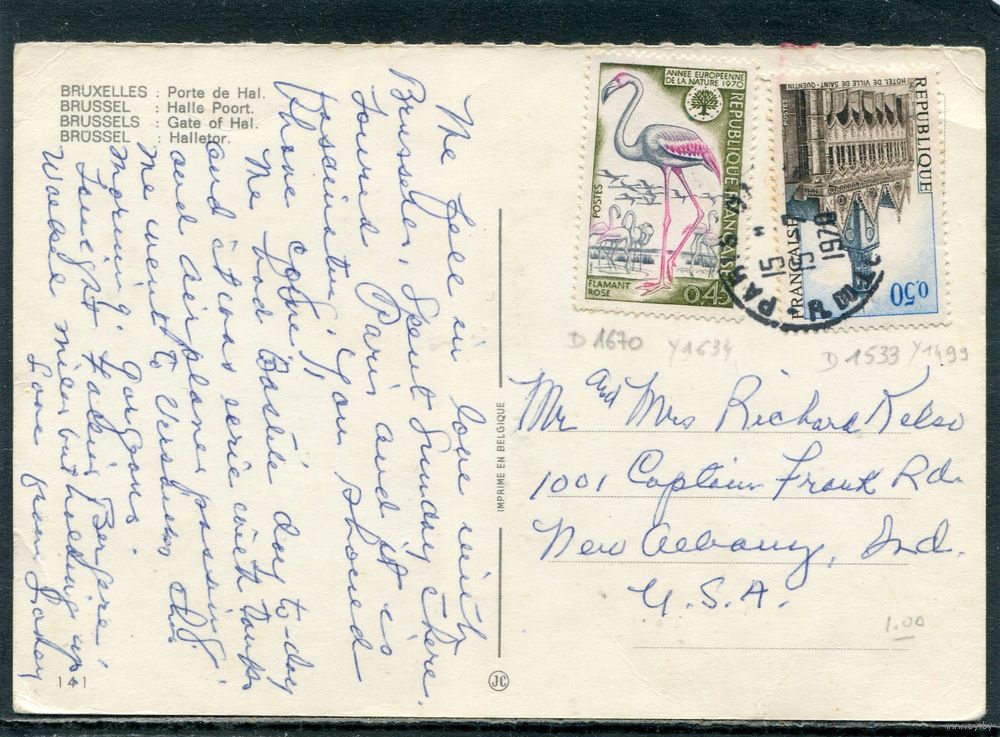 BRUXELLES : Porte de Hal.
BRUSSEL : Halle Poort.
BRUSSELS : Gate of Hal.
BRÜSSEL : Halletor.
We fell in love with
Brussels, Spent Sunday there.
Toured Paris and it is
fascinating. You should
have come!
We had Bastile day to-day
and it was erie with tanks
and airplanes passing
We went to Versailles this
morning. Gorgeous.
Tonight Follies Bergere.
Walked miles but holding up
Love from
141
IMPRIME EN BELGIQUE
JC
ANNEE EUROPÉENNE
DE LA NATURE 1970
REPUBLIQUE FRANÇAISE
POSTES
FLAMANT
ROSE
0,45
HOTEL DE VILLE DE SAINT-QUENTIN
POSTES
REPUBLIQUE
FRANÇAISE
0,50
PARIS
15 H
15 - 7
1970
D 1670 Y 1634
D 1533 Y 1499
Mr and Mrs Richard Kelso
1001 Captain Frank Rd.
New Albany, Ind.
U.S.A.
1.00